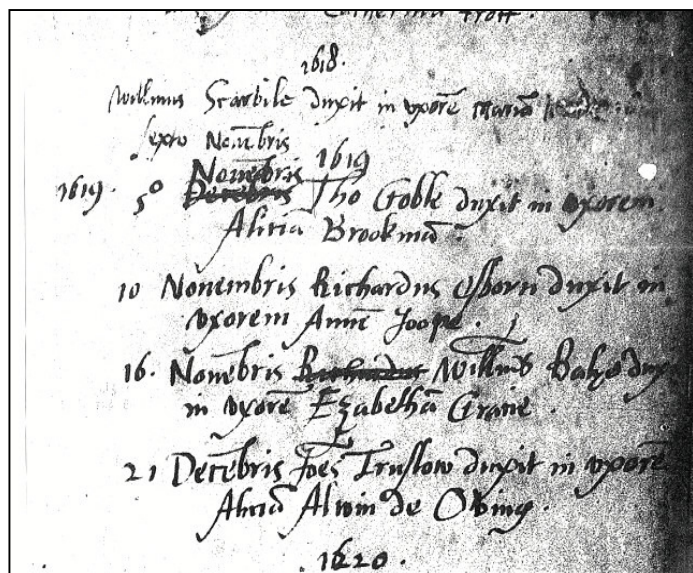 Catherina Trott.
1618.
Willmus Scarbile duxit in vxorē Mariā
sexto Novēbris
Novēbris 1619
1619. 5º Decēbris Tho Goble duxit in vxorem
Aliciā Brookmā.
10 Novembris Richardus Osborn duxit in
vxorem Annē Joope.
16. Novēbris Richardus Willm̄s duxit
in vxorē Ezabethā Grave.
21 Decēbris Joes Truslow duxit in vxorē
Aliciā Alwin de Oving.
.1620.